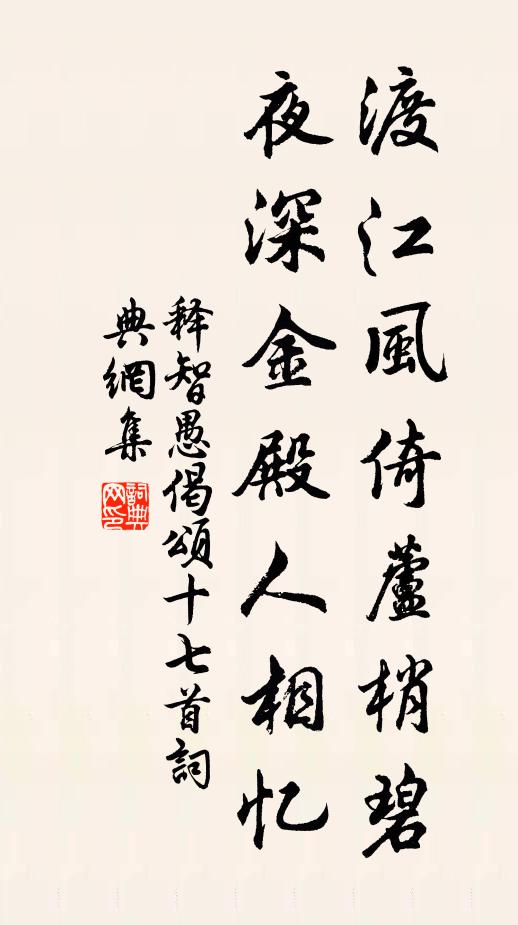 渡江風倚蘆梢碧
夜深金殿人相忆
释智愚偈頌十七首詞
典網集
詞典網印